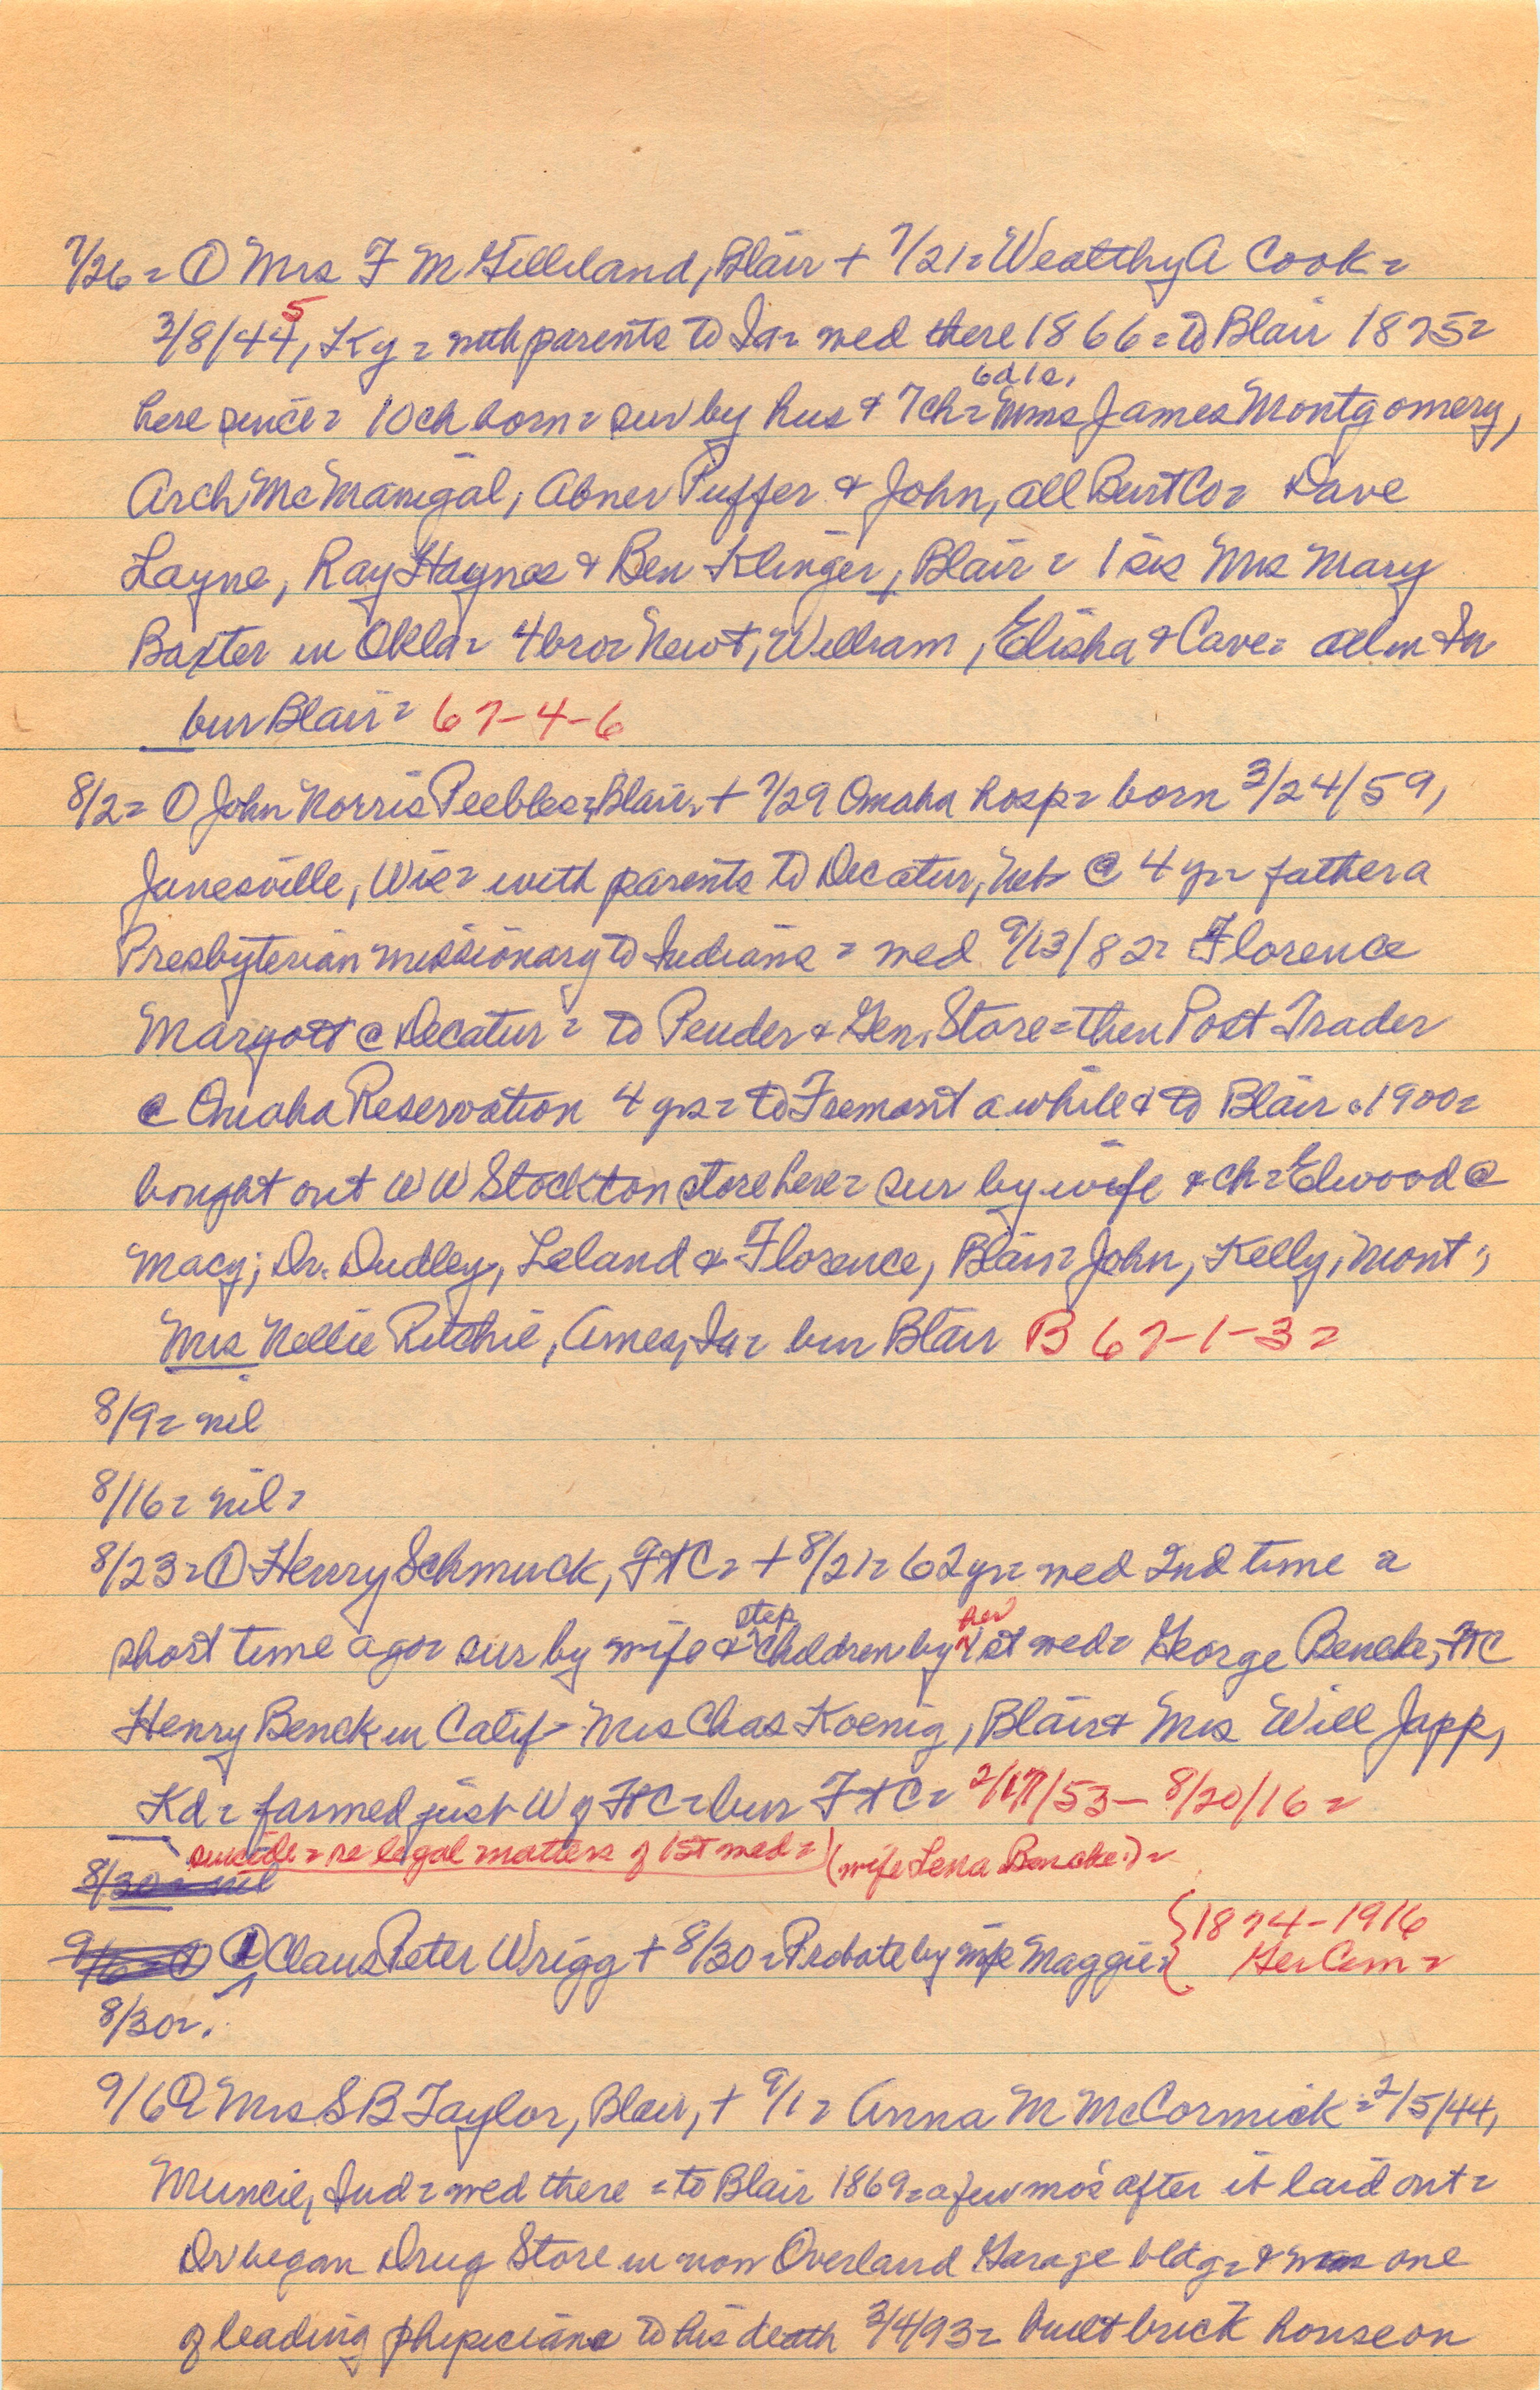 7/26 = ① Mrs F M Gilleland, Blair + 7/21 = Wealthy A Cook =
3/8/44 5, Ky = with parents to Ia = wed there 1866 = to Blair 1875 =
6 da 1 s,
here since = 10 ch born = sur by hus & 7 ch = Mms James Montgomery,
Arch McManigal, Abner Puffer & John, all Burt Co = Dave
Layne, Ray Haynes & Ben Klinger, Blair = 1 sis Mrs Mary
Baxter in Okla = 4 bro = Newt, William, Elisha & Cave = all in
bur Blair = 67-4-6
8/2 = ① John Norris Peebles, Blair, + 7/29 Omaha hosp = born 3/24/59,
Janesville, Wis = with parents to Decatur, Neb @ 4 yr = father a
Presbyterian missionary to Indians = wed 9/13/82 = Florence
Margott @ Decatur = to Pender & Gen. Store = then Post Trader
@ Omaha Reservation 4 yrs = to Fremont a while & to Blair c 1900 =
bought out W W Stockton store here = sur by wife & ch = Elwood @
Macy; Dr. Dudley, Leland & Florence, Blair = John, Kelly, Mont;
Mrs Nellie Ritchie, Ames, Ia = bur Blair B 67-1-3 =
8/9 = nil
8/16 = nil =
8/23 = ① Henry Schmuck, FtC = + 8/21 = 62 yr = wed 2nd time a
step her
short time ago = sur by wife & children by 1st wed = George Beneke, FtC
Henry Benek in Calif - Mrs Chas Koenig, Blair & Mrs Will Japp,
Kd = farmed just W of FtC = bur FtC = 2/17/53 - 8/20/16 =
suicide = re legal matters of 1st wed = (wife Lena Beneke) =
8/30 = nil
9/6 = ① ① Claus Peter Wrigg + 8/30 = Probate by wife Maggie = { 1874-1916
Ger Cem =
8/30 =
9/6 ① Mrs S B Taylor, Blair, + 9/1 = Anna M McCormick = 2/5/44,
Muncie, Ind = wed there = to Blair 1869 = a few mos after it laid out =
Dr began Drug Store in now Overland Garage bldg = & was one
of leading physicians to his death 3/4/93 = built brick house on